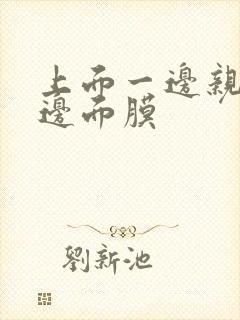 上而一邊親
邊而膜
劉新池